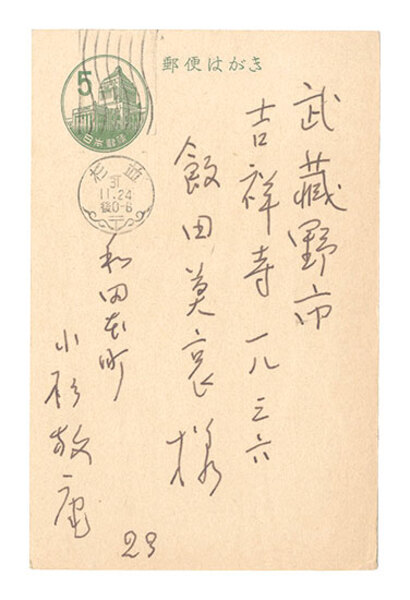 郵便はがき
5
日本郵便
杉並
31
11.24
後0-6
〒
武藏野市
吉祥寺一八三六
飯田莫哀様
和田本町
小杉放庵
23